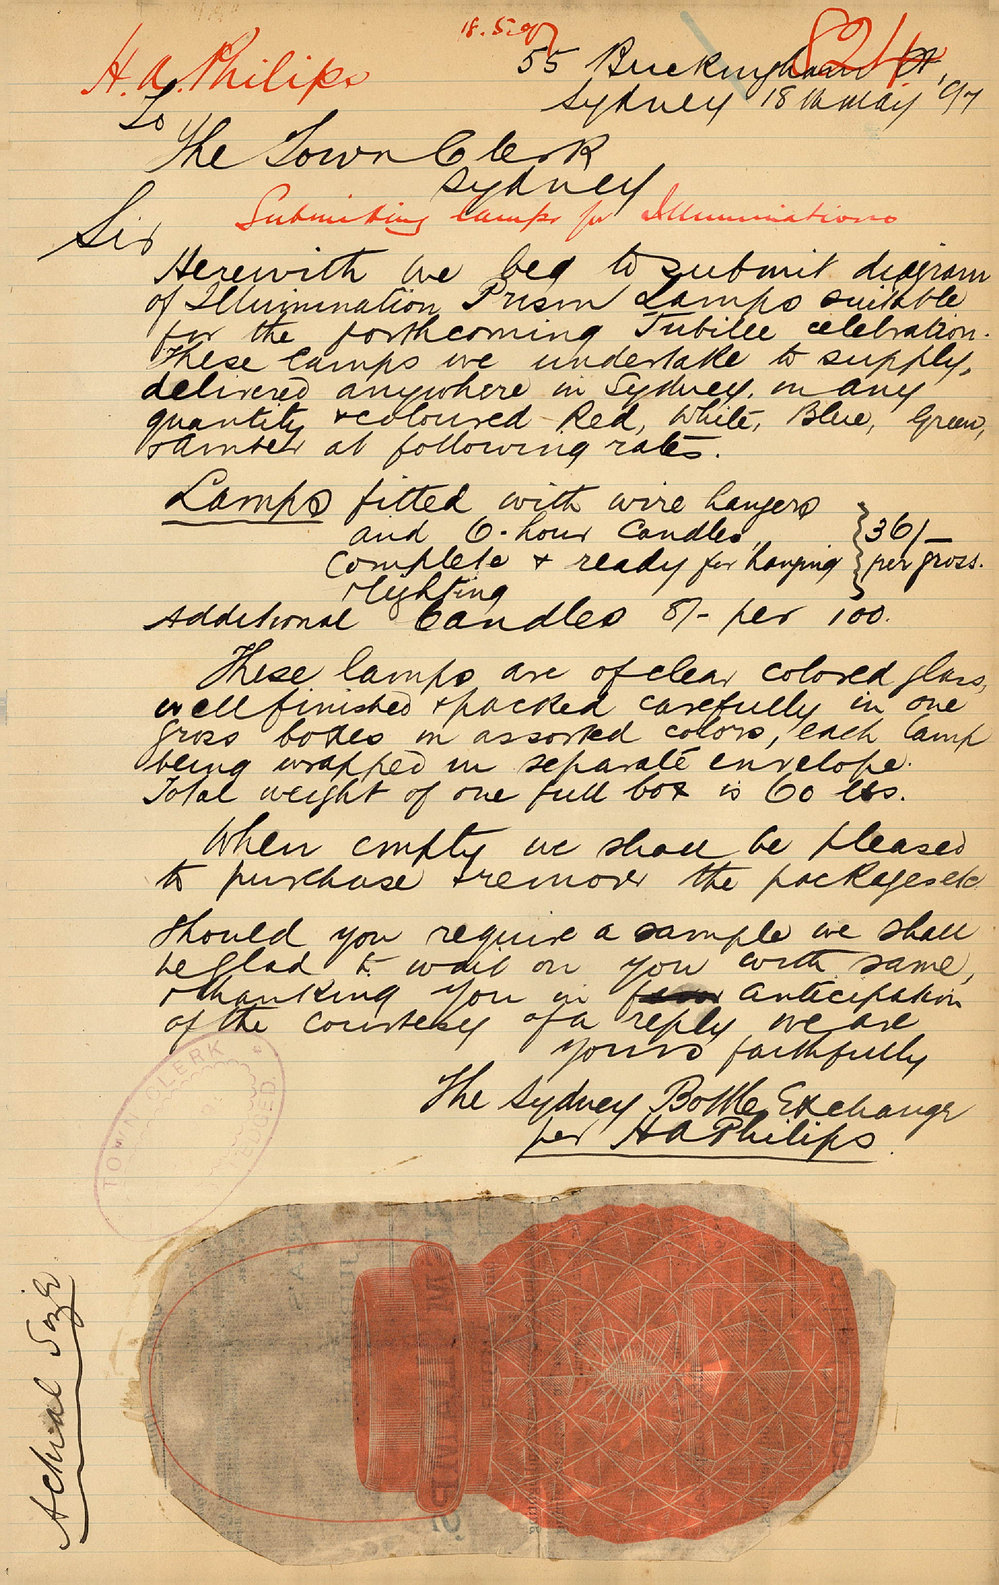 18.5.97
824
H. A. Philips
55 Buckingham St,
Sydney 18th May '97
To
The Town Clerk
Sydney
Submitting lamps for Illuminations
Sir
Herewith we beg to submit diagram
of Illumination Prism Lamps suitable
for the forthcoming Jubilee celebration.
These lamps we undertake to supply,
delivered anywhere in Sydney, in any
quantity & coloured Red, White, Blue, Green,
& amber at following rates.
Lamps fitted with wire hangers
and 6-hour Candles
complete & ready for hanging
& lighting
36/-
per gross.
Additional Candles 8/- per 100.
These lamps are of clear colored glass,
well finished & packed carefully in one
gross boxes in assorted colors, each lamp
being wrapped in separate envelope.
Total weight of one full box is 60 lbs.
When empty we shall be pleased
to purchase & remove the packages etc
Should you require a sample we shall
be glad to wait on you with same,
& thanking you in anticipation
of the courtesy of a reply we are
yours faithfully
The Sydney Bottle Exchange
per H A Philips
TOWN CLERK
Actual Size